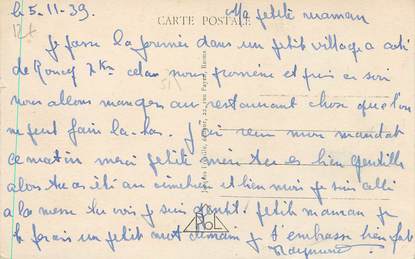 le 5-11-39.
CARTE POSTALE
Ma petite maman
je passe la journée dans un petit village a coté
de 7 Km cela nous promène et puis ce soir
nous allons manger au restaurant chose que l'on
ne peut faire la-bas. j'ai reçu mon mandat
ce matin merci petite mère tu es bien gentille
alors tu as été au cimetière et bien moi je suis allé
a la messe tu vois je suis gentil. petite maman je
te ferais un petit mot demain je t'embrasse bien fort
Raymond